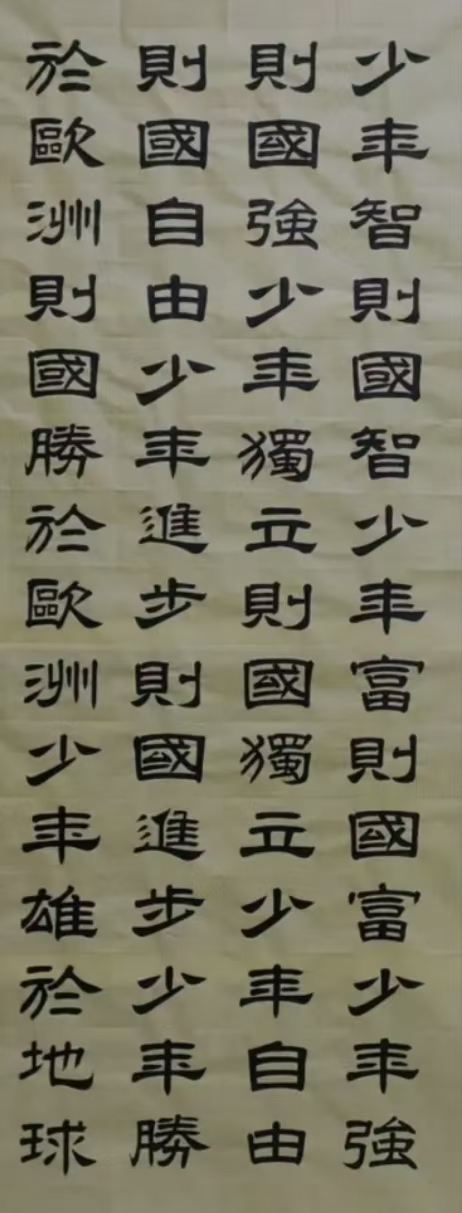 少年智則國智少年富則國富少年強
則國強少年獨立則國獨立少年自由
則國自由少年進步則國進步少年勝
於歐洲則國勝於歐洲少年雄於地球